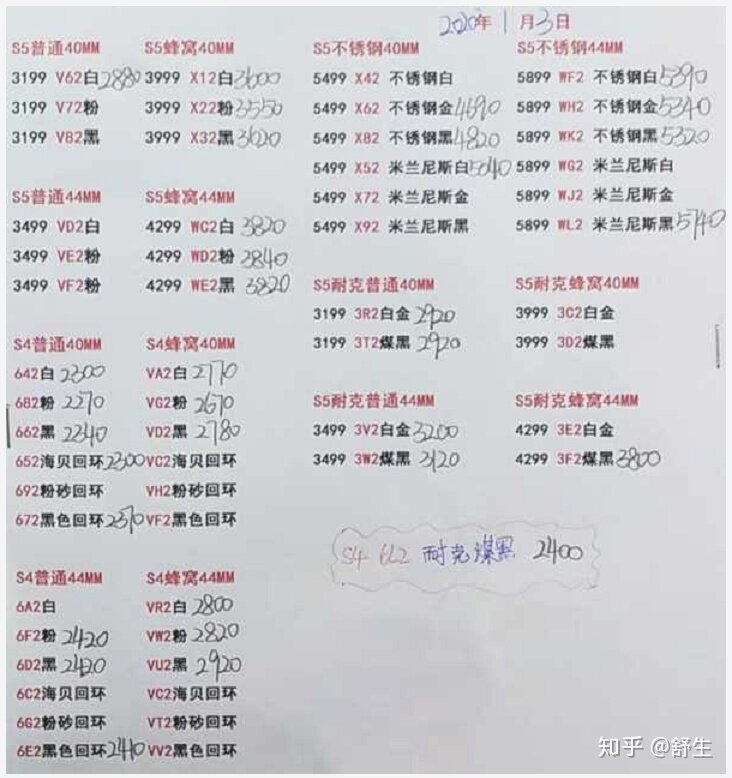 2020年1月3日
S5普通40MM
3199 V62白2880
3199 V72粉
3199 V82黑
S5蜂窝40MM
3999 X12白3600
3999 X22粉3550
3999 X32黑3620
S5不锈钢40MM
5499 X42 不锈钢白
5499 X62 不锈钢金4690
5499 X82 不锈钢黑4820
5499 X52 米兰尼斯白5040
5499 X72 米兰尼斯金
5499 X92 米兰尼斯黑
S5不锈钢44MM
5899 WF2 不锈钢白5390
5899 WH2 不锈钢金5340
5899 WK2 不锈钢黑5320
5899 WG2 米兰尼斯白
5899 WJ2 米兰尼斯金
5899 WL2 米兰尼斯黑5740
S5普通44MM
3499 VD2白
3499 VE2粉
3499 VF2粉
S5蜂窝44MM
4299 WC2白3820
4299 WD2粉3840
4299 WE2黑3820
S5耐克普通40MM
3199 3R2白金2920
3199 3T2煤黑2920
S5耐克蜂窝40MM
3999 3C2白金
3999 3D2煤黑
S4普通40MM
642白2300
682粉2270
662黑2340
652海贝回环2300
692粉砂回环
672黑色回环2370
S4蜂窝40MM
VA2白2770
VG2粉2670
VD2黑2780
VC2海贝回环
VH2粉砂回环
VF2黑色回环
S5耐克普通44MM
3499 3V2白金3200
3499 3W2煤黑3120
S5耐克蜂窝44MM
4299 3E2白金
4299 3F2煤黑3800
S4 6L2 耐克煤黑 2400
S4普通44MM
6A2白
6F2粉2420
6D2黑2420
6C2海贝回环
6G2粉砂回环
6E2黑色回环2410
S4蜂窝44MM
VR2白2800
VW2粉2820
VU2黑2920
VC2海贝回环
VT2粉砂回环
VV2黑色回环
知乎 @舒生